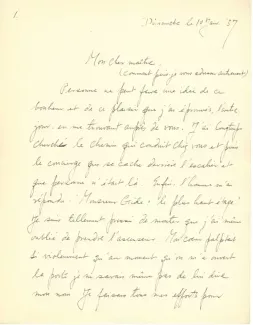 1
Dimanche le 10 '37
Mon cher maître,
(comment puis-je vous adresser autrement)
Personne ne peut faire une idée de ce
bonheur et de ce plaisir que j'ai éprouvés, l'autre
jour, en me trouvant auprès de vous. J'ai longtemps
cherché le chemin qui conduit chez vous et puis
le concierge que se cache derrière l'escalier et
que personne n'était là. Enfin l'homme m'a
répondu : Monsieur Gide : le plus haut étage!
Je suis tellement pressé de monter que j'ai même
oublié de prendre l'ascenseur. Mon cœur palpitait
si violemment qu'au moment où on m'a ouvert
la porte je ne savais même pas de lui dire
mon nom. Je faisais tous mes efforts pour